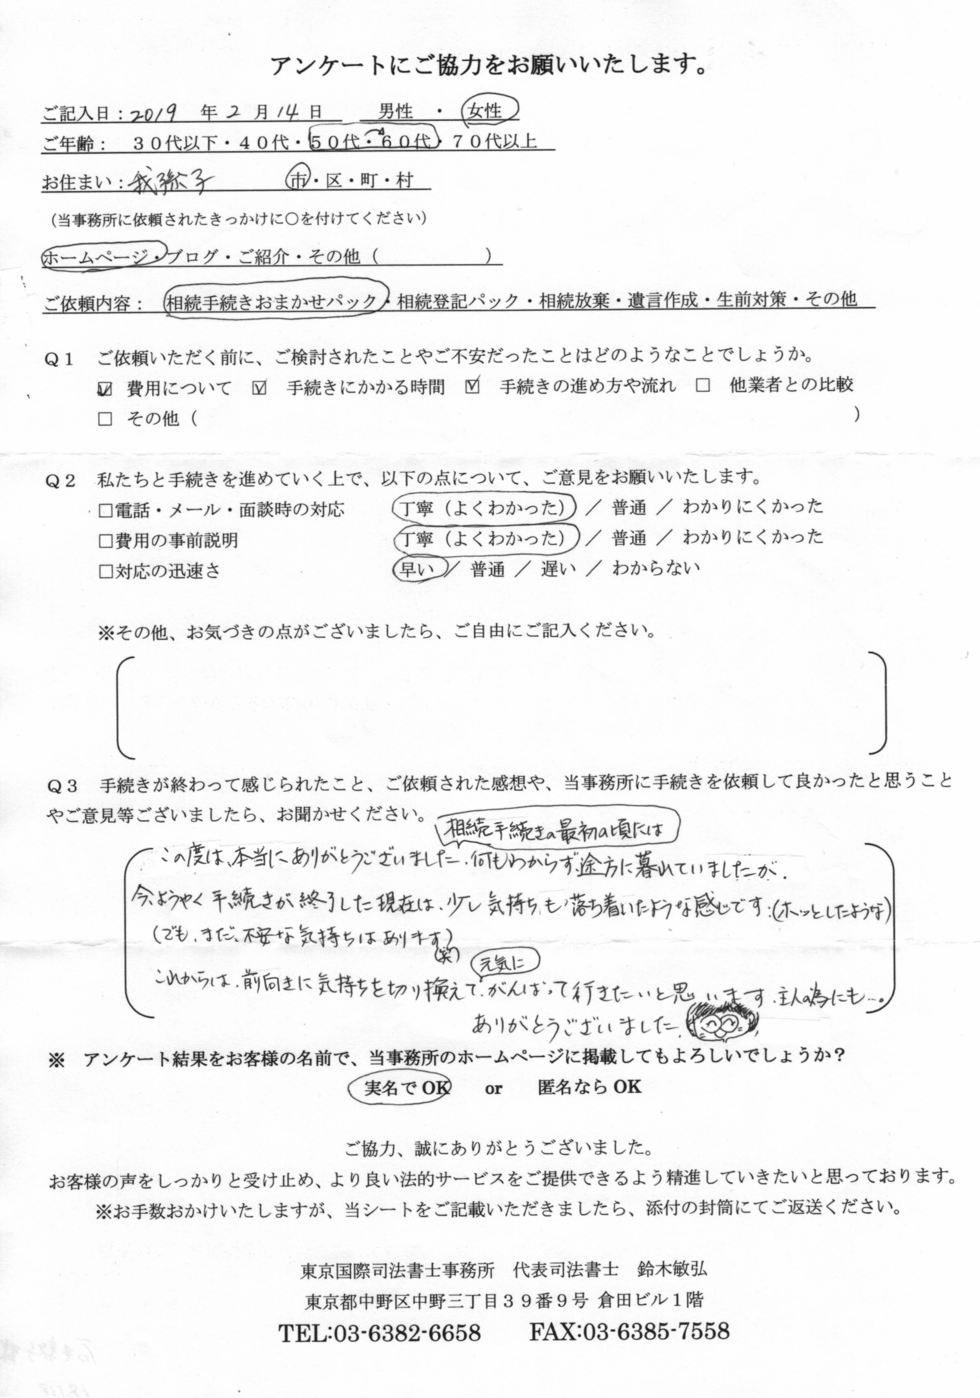 アンケートにご協力をお願いいたします。
ご記入日:2019 年 2 月 14 日 男性 ・ 女性
ご年齢: 30代以下・40代・50代・60代・70代以上
お住まい:我孫子 市・区・町・村
(当事務所に依頼されたきっかけに○を付けてください)
ホームページ・ブログ・ご紹介・その他( )
ご依頼内容: 相続手続きおまかせパック・相続登記パック・相続放棄・遺言作成・生前対策・その他
Q1 ご依頼いただく前に、ご検討されたことやご不安だったことはどのようなことでしょうか。
☑ 費用について ☑ 手続きにかかる時間 ☑ 手続きの進め方や流れ □ 他業者との比較
□ その他( )
Q2 私たちと手続きを進めていく上で、以下の点について、ご意見をお願いいたします。
□電話・メール・面談時の対応 丁寧(よくわかった)/ 普通 / わかりにくかった
□費用の事前説明 丁寧(よくわかった)/ 普通 / わかりにくかった
□対応の迅速さ 早い / 普通 / 遅い / わからない
※その他、お気づきの点がございましたら、ご自由にご記入ください。
Q3 手続きが終わって感じられたこと、ご依頼された感想や、当事務所に手続きを依頼して良かったと思うこと
やご意見等ございましたら、お聞かせください。
相続手続きの最初の頃には
この度は、本当にありがとうございました。何もわからず、途方に暮れていましたが、
今、ようやく手続きが終了した現在は、少し気持ちも落ち着いたような感じです。(ホッとしたような)
(でも、まだ、不安な気持ちはあります)
(笑) 元気に
これからは、前向きに気持ちを切り換えて、がんばって行きたいと思います。主人の為にも…。
ありがとうございました。
※ アンケート結果をお客様の名前で、当事務所のホームページに掲載してもよろしいでしょうか?
実名でOK or 匿名ならOK
ご協力、誠にありがとうございました。
お客様の声をしっかりと受け止め、より良い法的サービスをご提供できるよう精進していきたいと思っております。
※お手数おかけいたしますが、当シートをご記載いただきましたら、添付の封筒にてご返送ください。
東京国際司法書士事務所 代表司法書士 鈴木敏弘
東京都中野区中野三丁目39番9号 倉田ビル1階
TEL:03-6382-6658 FAX:03-6385-7558